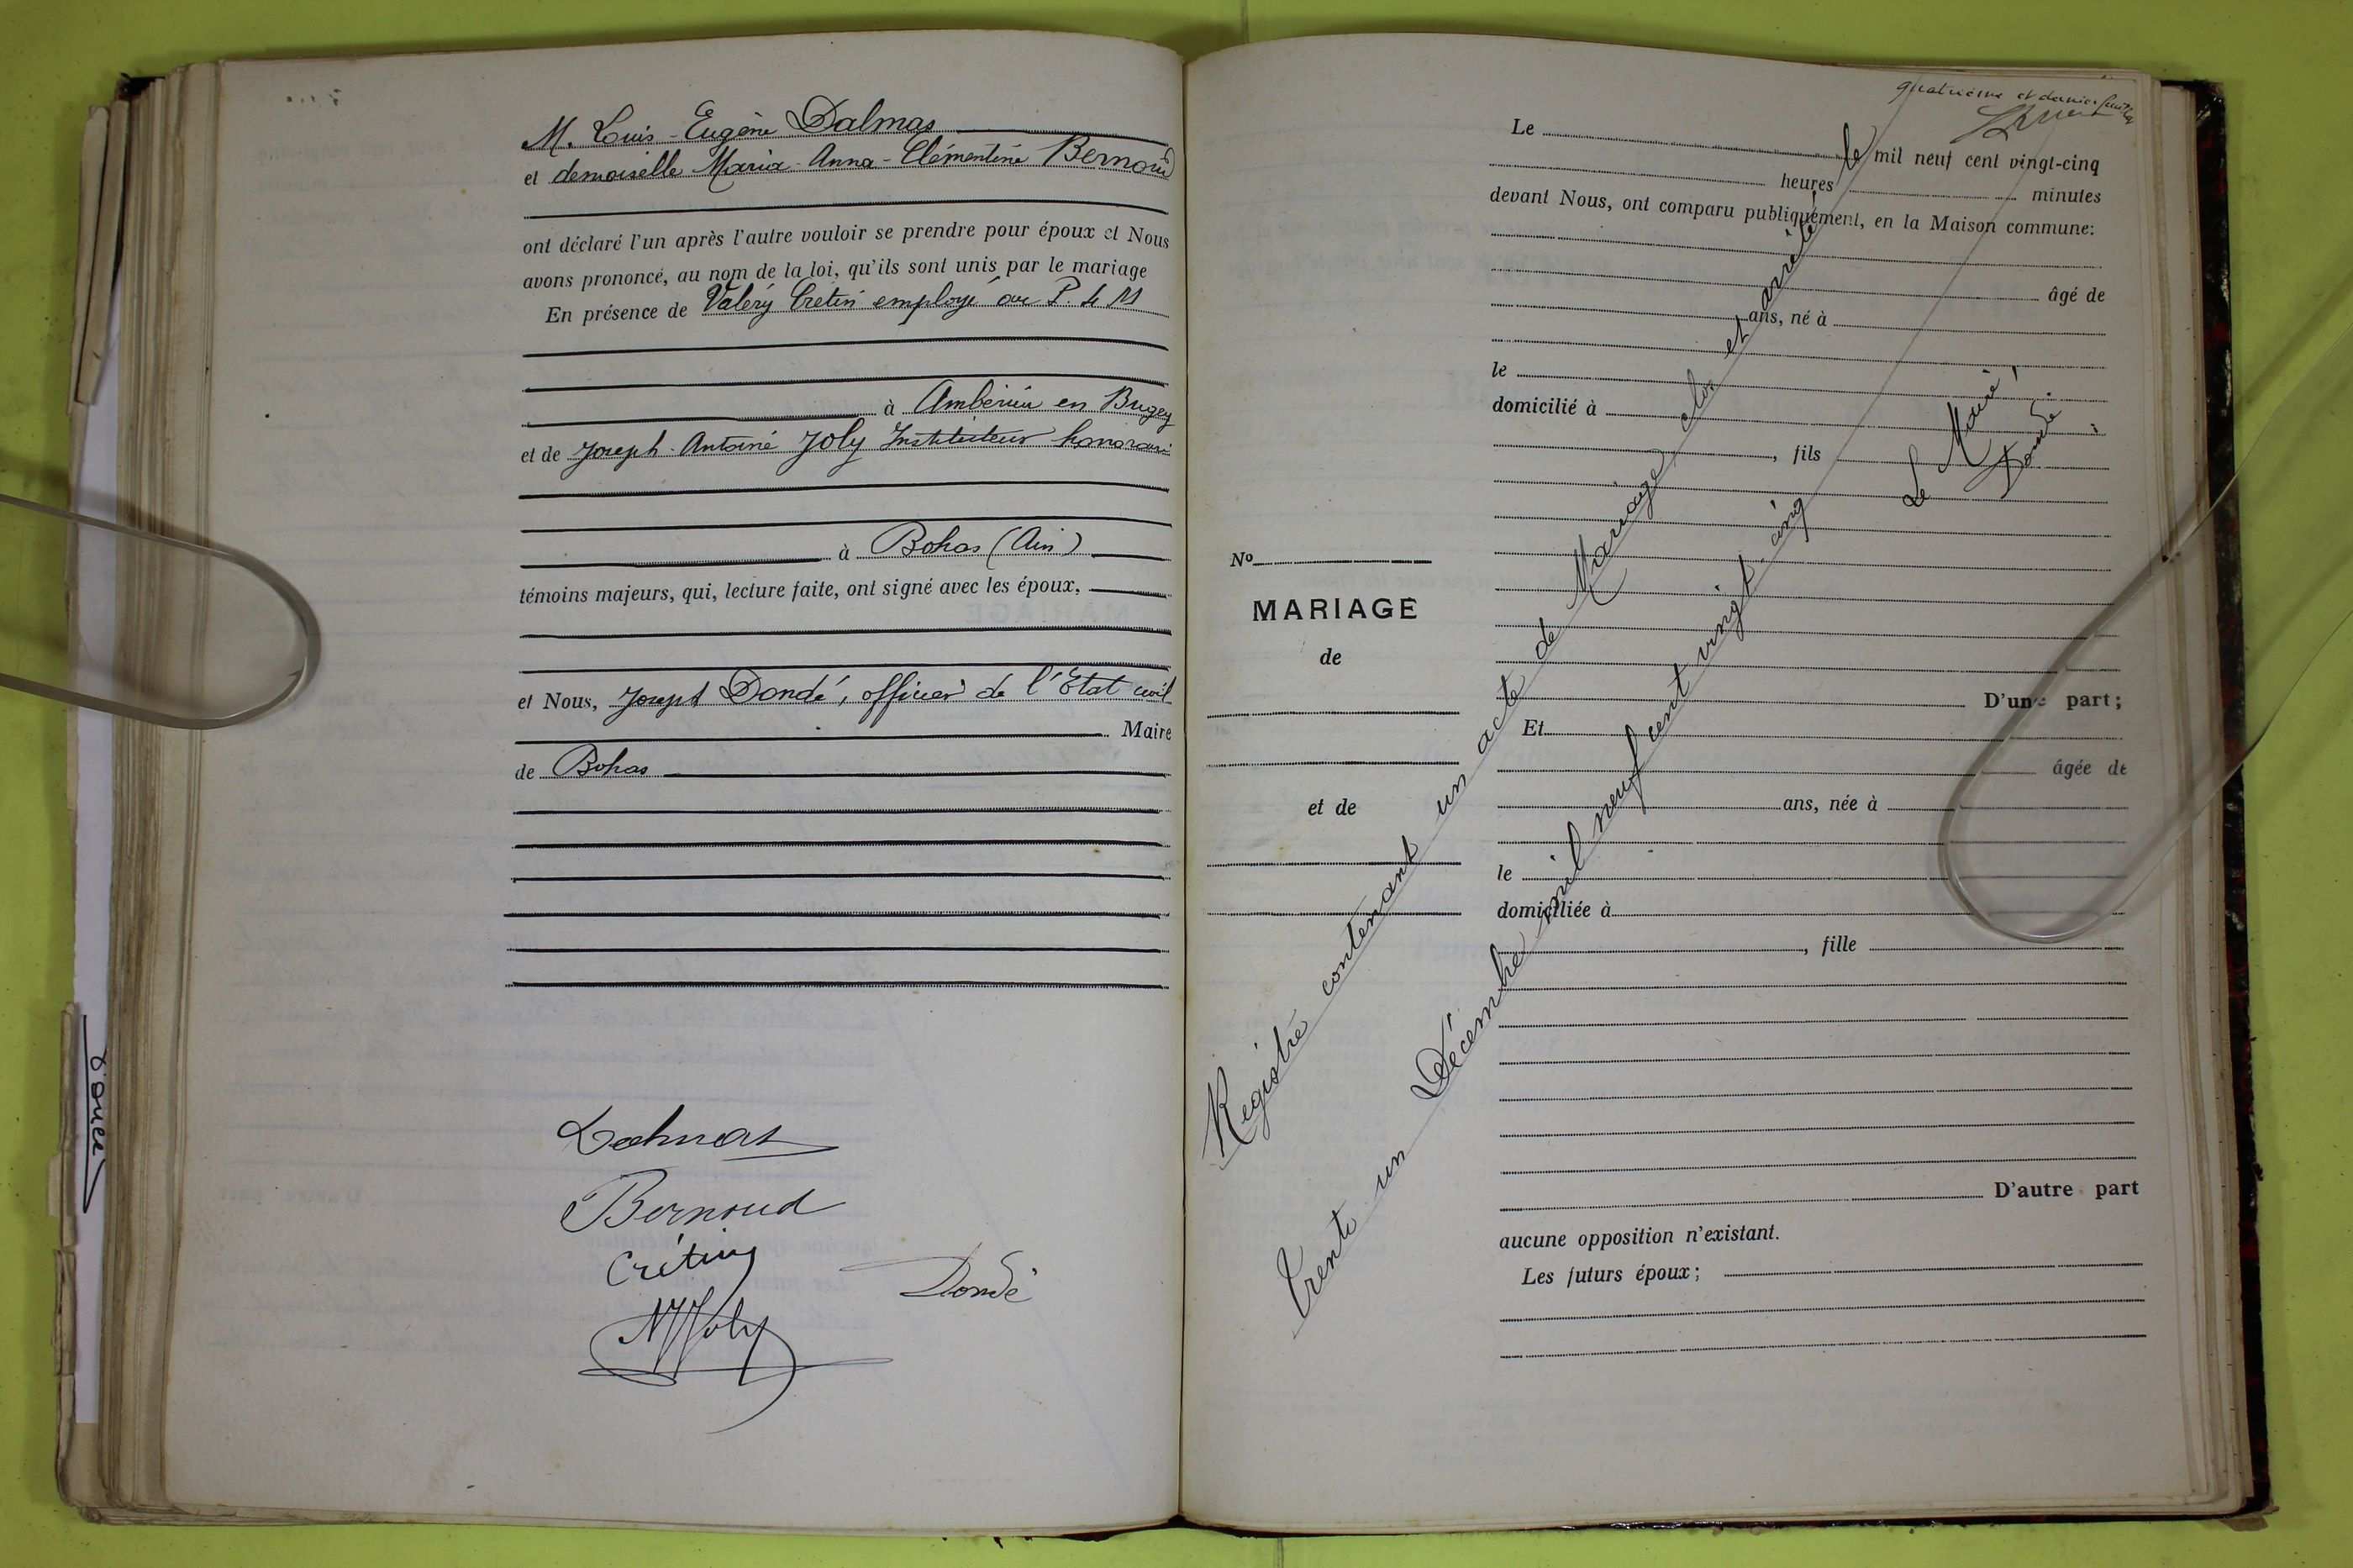 M. Louis-Eugène Dalmas
et demoiselle Maria-Anna-Clémentine Bernoud
ont déclaré l'un après l'autre vouloir se prendre pour époux et Nous
avons prononcé, au nom de la loi, qu'ils sont unis par le mariage
En présence de Valéry Crétin employé au P. L. M
à Ambérieu en Bugey
et de Joseph-Antoine Joly Instituteur honoraire
à Bohas (Ain)
témoins majeurs, qui, lecture faite, ont signé avec les époux,
et Nous, Joseph Dondé, officier de l'Etat civil
Maire
de Bohas
Dalmas
Bernoud
Crétin
Joly
Dondé
quatrième et dernier feuillet
Le mil neuf cent vingt-cinq
heures minutes
devant Nous, ont comparu publiquement, en la Maison commune:
âgé de
ans, né à
le
domicilié à
, fils
No
MARIAGE
de
et de
D'une part;
Et
âgée de
ans, née à
le
domiciliée à
, fille
D'autre part
aucune opposition n'existant.
Les futurs époux;
Registre contenant un acte de Mariage, clos et arrêté le
Trente un Décembre mil neuf cent vingt-cinq
Le Maire,
Dondé